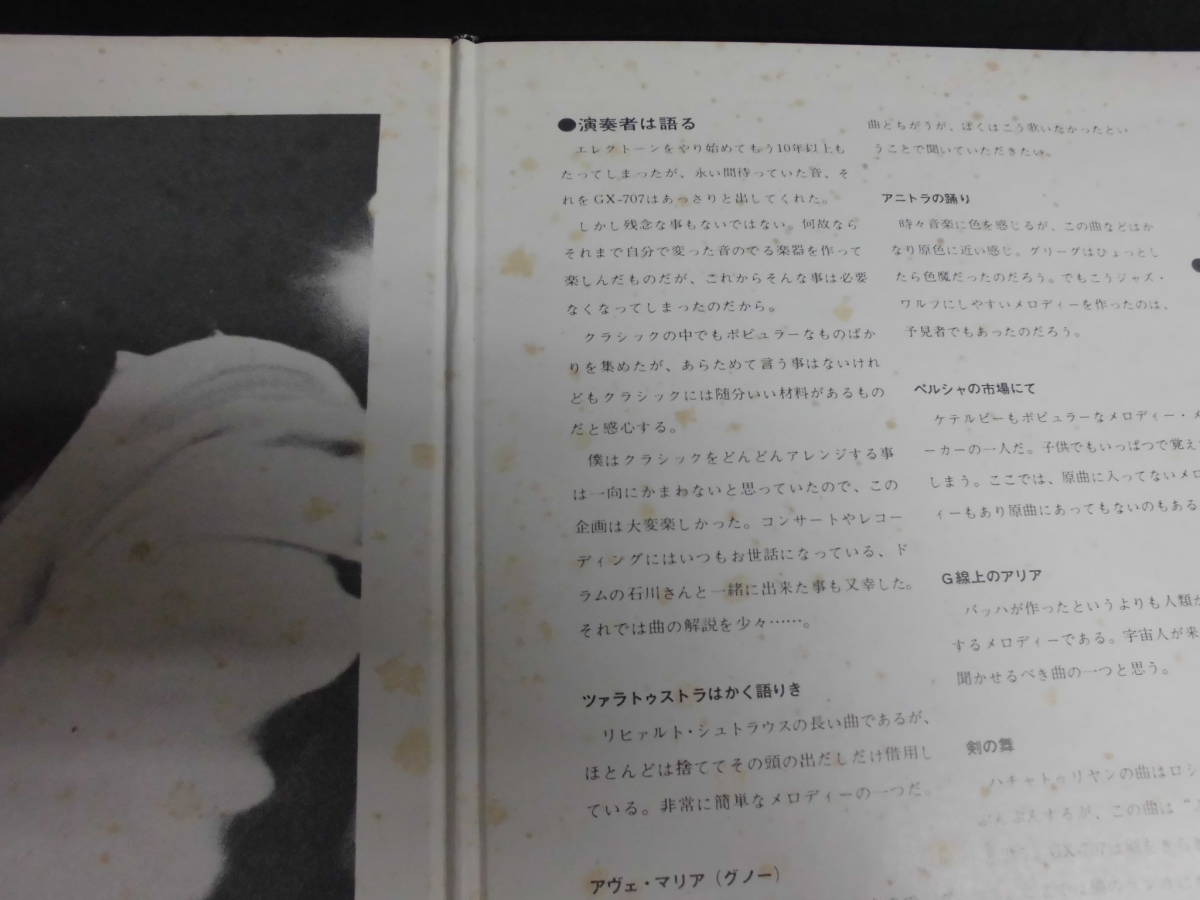 ●演奏者は語る
エレクトーンをやり始めてもう10年以上も
たってしまったが、永い間待っていた音、そ
れをGX-707はあっさりと出してくれた。
しかし残念な事もないではない。何故なら
それまで自分で変った音のでる楽器を作って
楽しんだものだが、これからそんな事は必要
なくなってしまったのだから。
クラシックの中でもポピュラーなものばか
りを集めたが、あらためて言う事はないけれ
どもクラシックには随分いい材料があるもの
だと感心する。
僕はクラシックをどんどんアレンジする事
は一向にかまわないと思っていたので、この
企画は大変楽しかった。コンサートやレコー
ディングにはいつもお世話になっている、ド
ラムの石川さんと一緒に出来た事も又幸した。
それでは曲の解説を少々……。
ツァラトゥストラはかく語りき
リヒァルト・シュトラウスの長い曲であるが、
ほとんどは捨ててその頭の出だしだけ借用し
ている。非常に簡単なメロディーの一つだ。
アヴェ・マリア（グノー）
曲とちがうが、ぼくはこう歌いたかったとい
うことで聞いていただきたい。
アニトラの踊り
時々音楽に色を感じるが、この曲などはか
なり原色に近い感じ。グリーグはひょっとし
たら色魔だったのだろう。でもこうジャズ・
ワルツにしやすいメロディーを作ったのは、
予見者でもあったのだろう。
ペルシャの市場にて
ケテルビーもポピュラーなメロディー・メ
ーカーの一人だ。子供でもいっぱつで覚え
しまう。ここでは、原曲に入ってないメロ
ィーもあり原曲にあってもないのもある
G線上のアリア
バッハが作ったというよりも人類が
するメロディーである。宇宙人が来
聞かせるべき曲の一つと思う。
剣の舞
ハチャトゥリヤンの曲はロシ
ぷんぷんするが、この曲は"
GX-707は